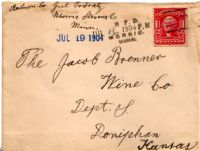 Return to
Morris Stevens Co.
Minn.
JUL 19 1904
R.F.D.
MORRIS,
MINN.
The Jacob Bronner
Wine Co
Dept. S
Doniphan
Kansas